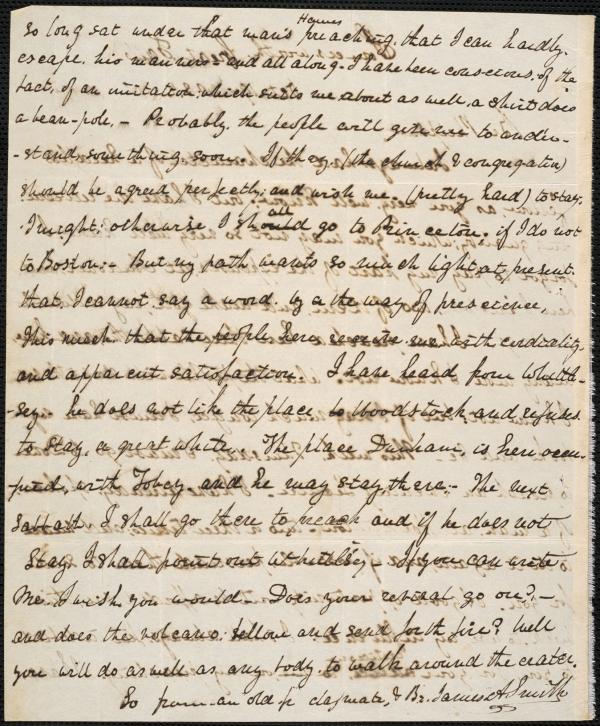 Hawes
so long sat under that man's preaching, that I can hardly
escape, his manners - and all along I have been conscious, of the
fact, of an imitation, which suits me about as well, a shirt does
a bean-pole, - Probably, the people will give me to under-
-stand something, soon. If they, (the church & congregation)
should be agreed perfectly, and wish me, (pretty hard) to stay,
I might; otherwise, I shall go to Princeton, if I do not
to Boston. - But my path wants so much light, at present.
that, I cannot say a word by the way of prescience,
This much that the people here receive me with cordiality
and apparent satisfaction. I have heard from Whittle-
-sey - he does not like the place to Woodstock, and refuses
to stay, a great while. The place Dunham, is here occu-
-pied, with Tobey and he may stay, there. - The next
Sabbath I shall go there to preach and if he does not
stay I shall point out Whittlesey - If you can write
me, I wish you would - Does your revival go on? -
and does the volcano, bellow and send forth fire? Well
you will do as well as any body to walk around the crater.
So from an old classmate, & Br. James A Smith